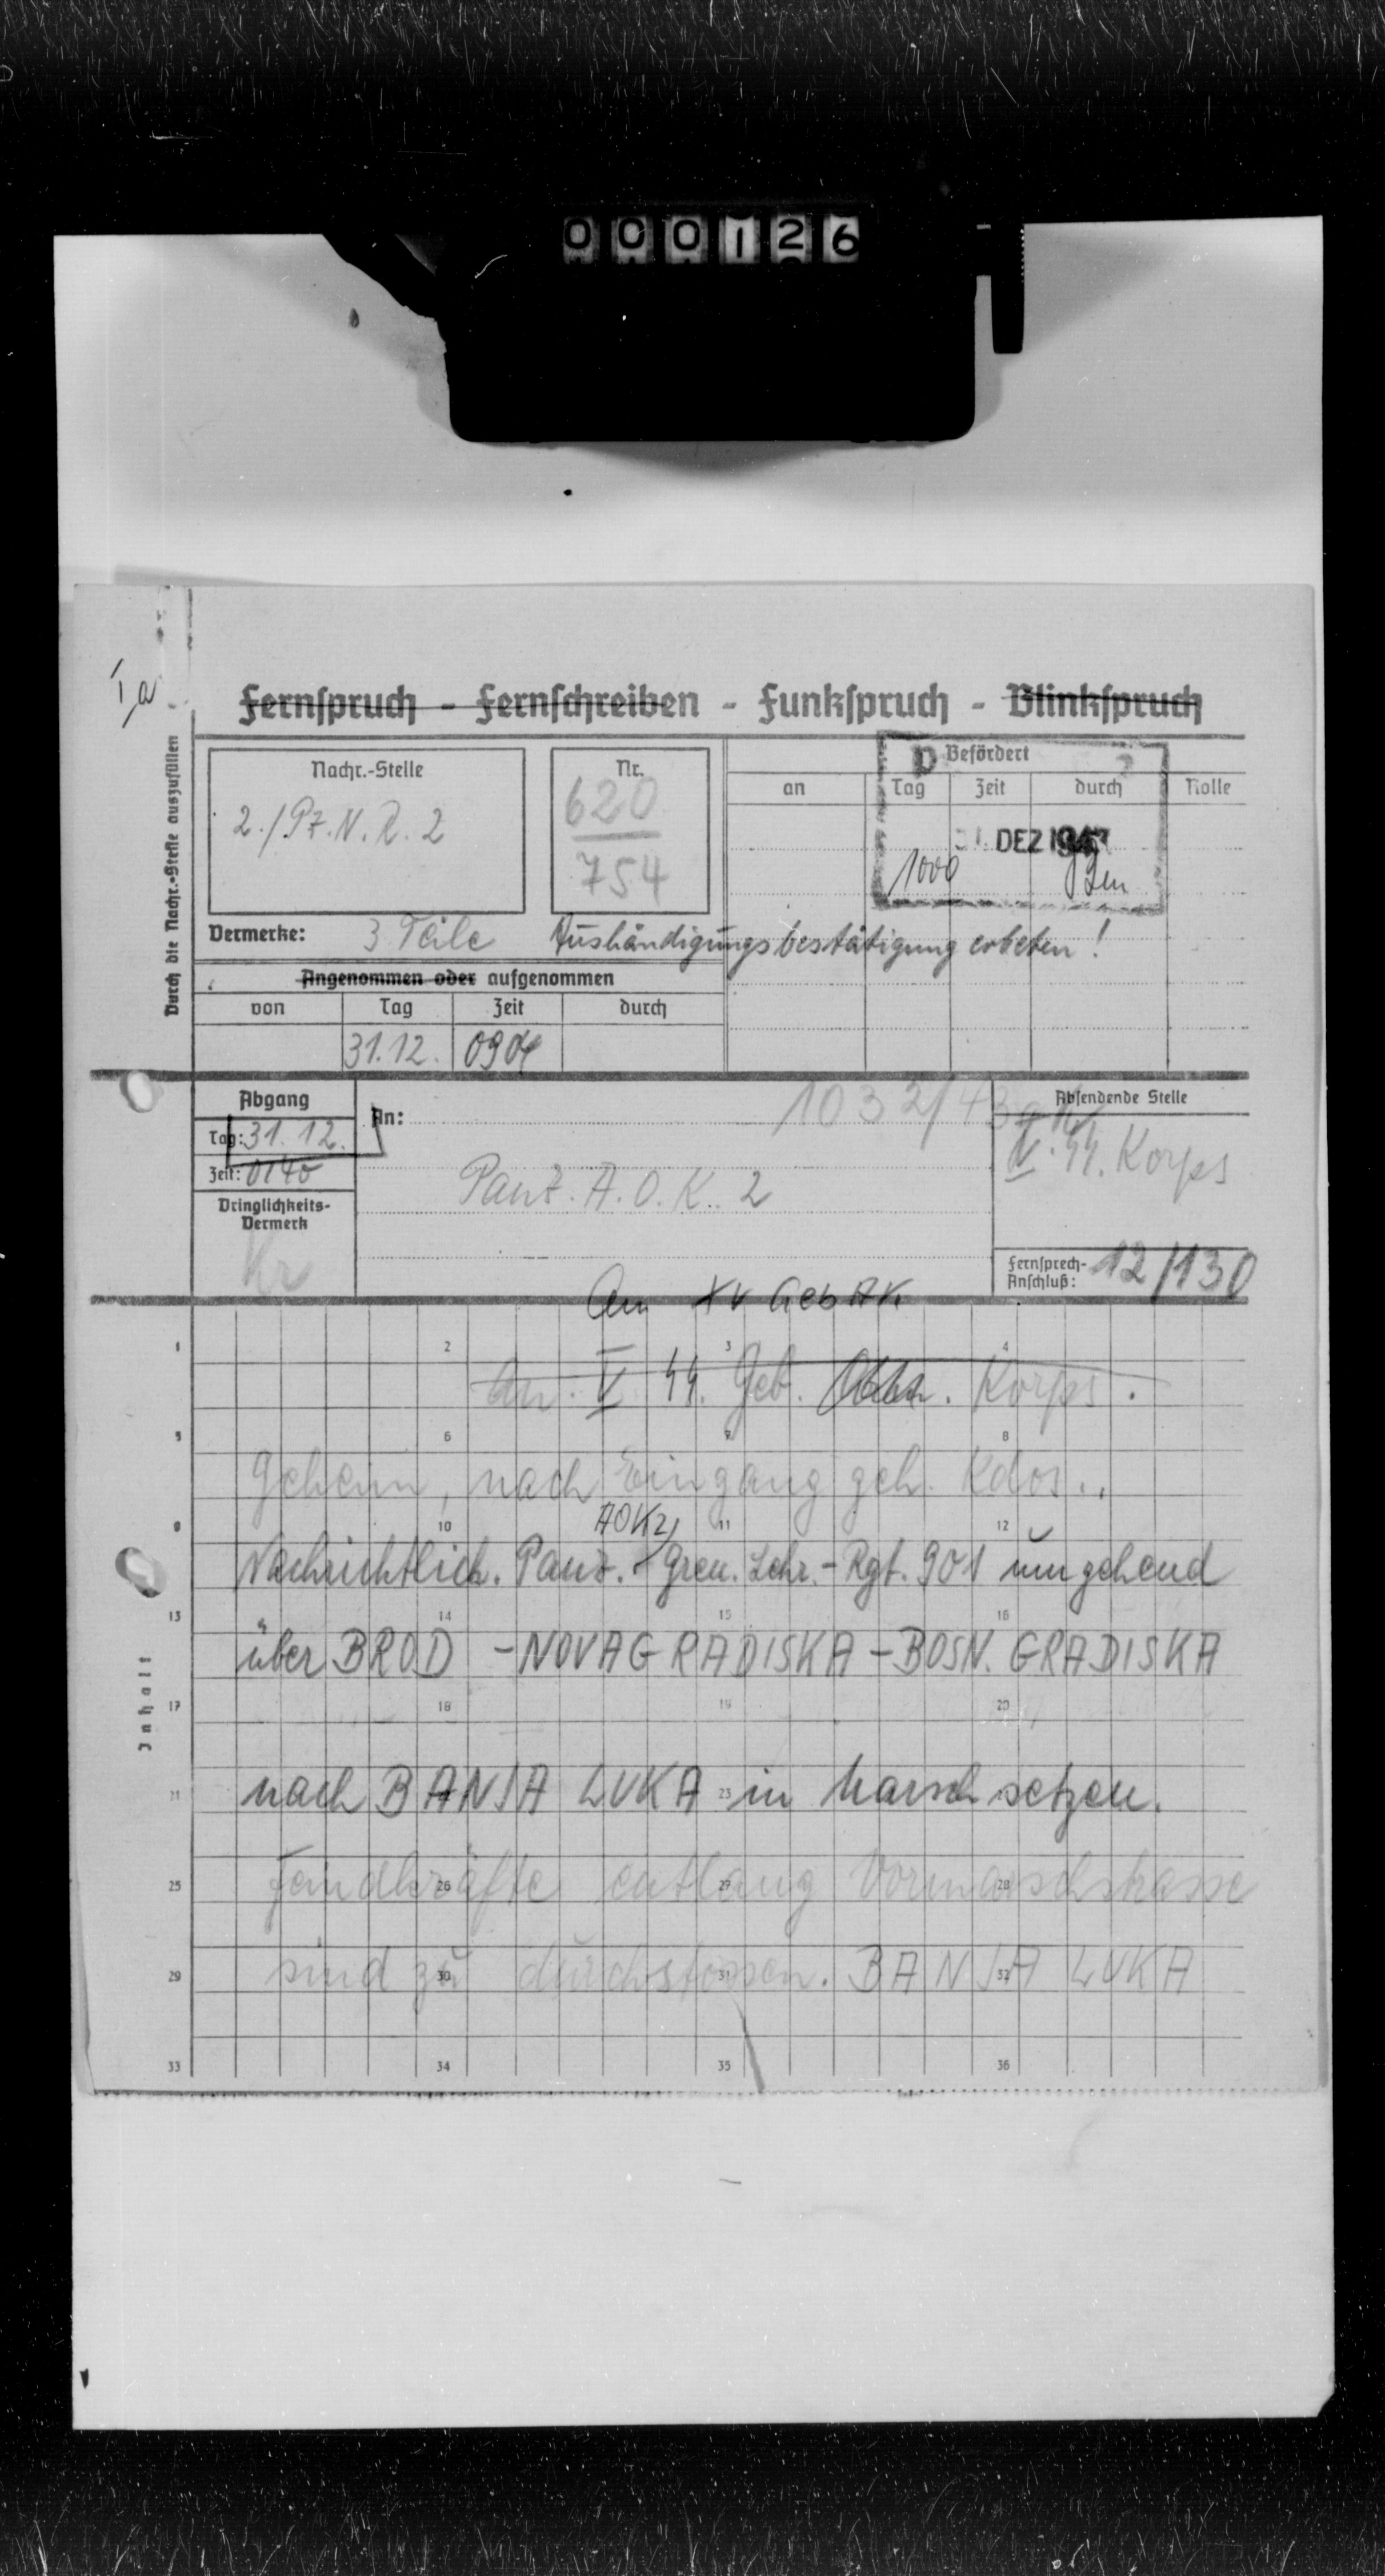 000126
Ia
Fernspruch - Fernschreiben - Funkspruch - Blinkspruch
Durch die Nachr.-Stelle auszufüllen
Nachr.-Stelle
2./Pz.N.R. 2
Nr.
620
754
Befördert
an Tag Zeit durch Rolle
31. DEZ 1943
1000
Vermerke: 3 Teile Aushändigungsbestätigung erbeten!
Angenommen oder aufgenommen
von Tag Zeit durch
31.12. 0904
Abgang
Tag: 31.12.
Zeit: 0140
Dringlichkeits-
Vermerk
Kr
An: 1032/43
Panz. A.O.K. 2
Absendende Stelle
V. SS. Korps
Fernsprech-
Anschluß: 12/130
An XV Geb AK
An V SS. Geb. Korps.
Geheim, nach Eingang geh. Kdos..
AOK 2
Nachrichtlich. Panz.-Gren. Lehr.-Rgt. 901 umgehend
über BROD - NOVAGRADISKA - BOSN. GRADISKA
nach BANJA LUKA in Marsch setzen.
Feindkräfte entlang Vormarschstrasse
sind zu durchstossen. BANJA LUKA
Inhalt
1 2 3 4
5 6 7 8
9 10 11 12
13 14 15 16
17 18 19 20
21 23
25 26 27 28
29 30 31 32
33 34 35 36